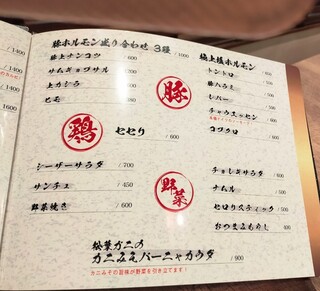 豚ホルモン盛り合わせ 3種 / 1000
豚上ナンコツ 600
サムギョプサル / 200
上カシラ
ヒモ
極上塩ホルモン
トントロ
豚ハラミ
レバー
チャウエッセン
コブクロ
豚
鶏
セセリ / 600
シーザーサラダ / 700
サンチュ / 450
野菜焼き / 600
野菜
チョレギサラダ
ナムル / 500
セロリスティック / 500
おつまみもやし 400
松葉ガニの
カニみそバーニャカウダ / 900
カニみその旨味が野菜を引き立てます!
/ 1400
/ 1400
/ 1400
1600